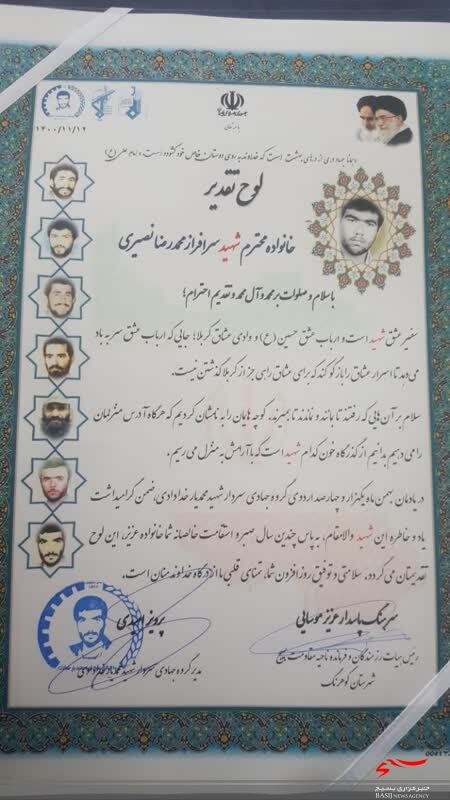 باسمه تعالی
۱۴۰۰/۱۱/۱۲
همانا جهاد دری از درهای بهشت است که خداوند به روی دوستان خاص خود گشوده است، امام علی (ع)
لوح تقدیر
خانواده محترم شهید سرافراز محمدرضا نصیری
با سلام و صلوات بر محمد و آل محمد و تقدیم احترام؛
سفیر عشق شهید است و ارباب عشق حسین (ع) و وادی عشاق کربلا؛ جایی که ارباب عشق سر به باد
می دهد تا اسرار عشاق را باز گو کند که برای عشاق راهی جز از کربلا گذشتن نیست.
سلام بر آن هایی که رفتند تا بمانند و نماندند تا بمیرند، کوچه هایمان را به نامشان کردیم که هرگاه آدرس منزلمان
را می دهیم بدانیم از گذرگاه خون کدام شهید است که با آرامش به منزل می رسیم.
در یادمان بهمن ماه یکهزار و چهارصد اردوی گروه جهادی سردار شهید محمدیار خدادادی، ضمن گرامیداشت
یاد و خاطره این شهید والامقام، به پاس چندین سال صبر و استقامت خالصانه شما خانواده عزیز، این لوح
تقدیمتان می گردد. سلامتی و توفیق روز افزون شما، تمنای قلبی ما از درگاه خداوند منان است.
سرهنگ پاسدار عزیز موسایی
رئیس هیات رزمندگان و فرمانده ناحیه مقاومت بسیج
شهرستان کوهرنگ
پرویز امیدی
مدیر گروه جهادی سردار شهید محمدیار خدادادی
خبرگزاری بسیج
BASIJ NEWS AGENCY